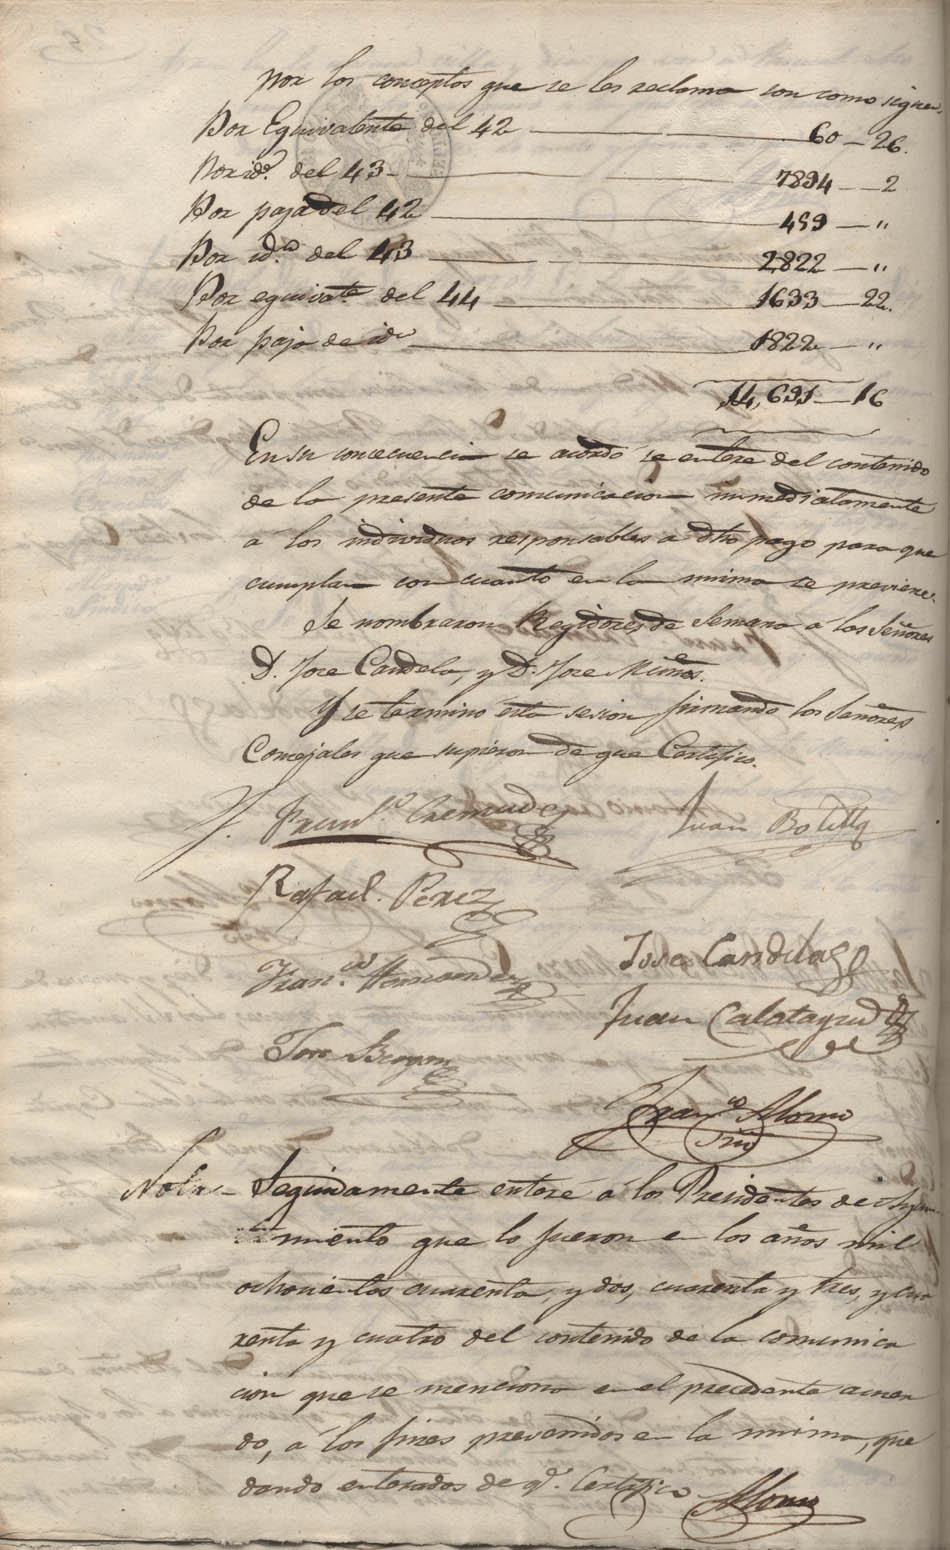 por los conceptos que se les reclama son como siguen.
Por Equivalente del 42 — 60 — 26.
Por id.º del 43 — 7894 — 2
Por paja del 42 — 459 — "
Por id.ª del 43 — 2,822 — "
Por equivate del 44 — 1633 — 22.
Por paja de id. — 1822 — "
14,691 — 16
En su concecuencia se acordó se entere del contenido
de la presente comunicacion inmediatamente
a los individuos responsables a dho pago para que
cumplan con cuanto en la misma se previene.
Se nombraron Regidores de Semana a los Señores
D. Jose Candela, y D. Jose Muñós.
Y se termino esta sesion firmando los Señores
Concejales que supieron de que Certifico.
Fran.co Cremades
Juan Botella
Rafael. Perez
Jose Candela
Fran.co Hernandez
Juan Calatayud
Fran.co Alonso
Srio
Nota – Seguidamente enteré a los Presidentes de Ayun
tamiento que lo fueron en los años mil
ochocientos cuarenta, y dos, cuarenta y tres, y cua
renta y cuatro del contenido de la comunica
cion que se menciona en el precedente acuer
do, a los fines prevenidos en la misma, que
dando enterados de q.e Certifico – Alonso